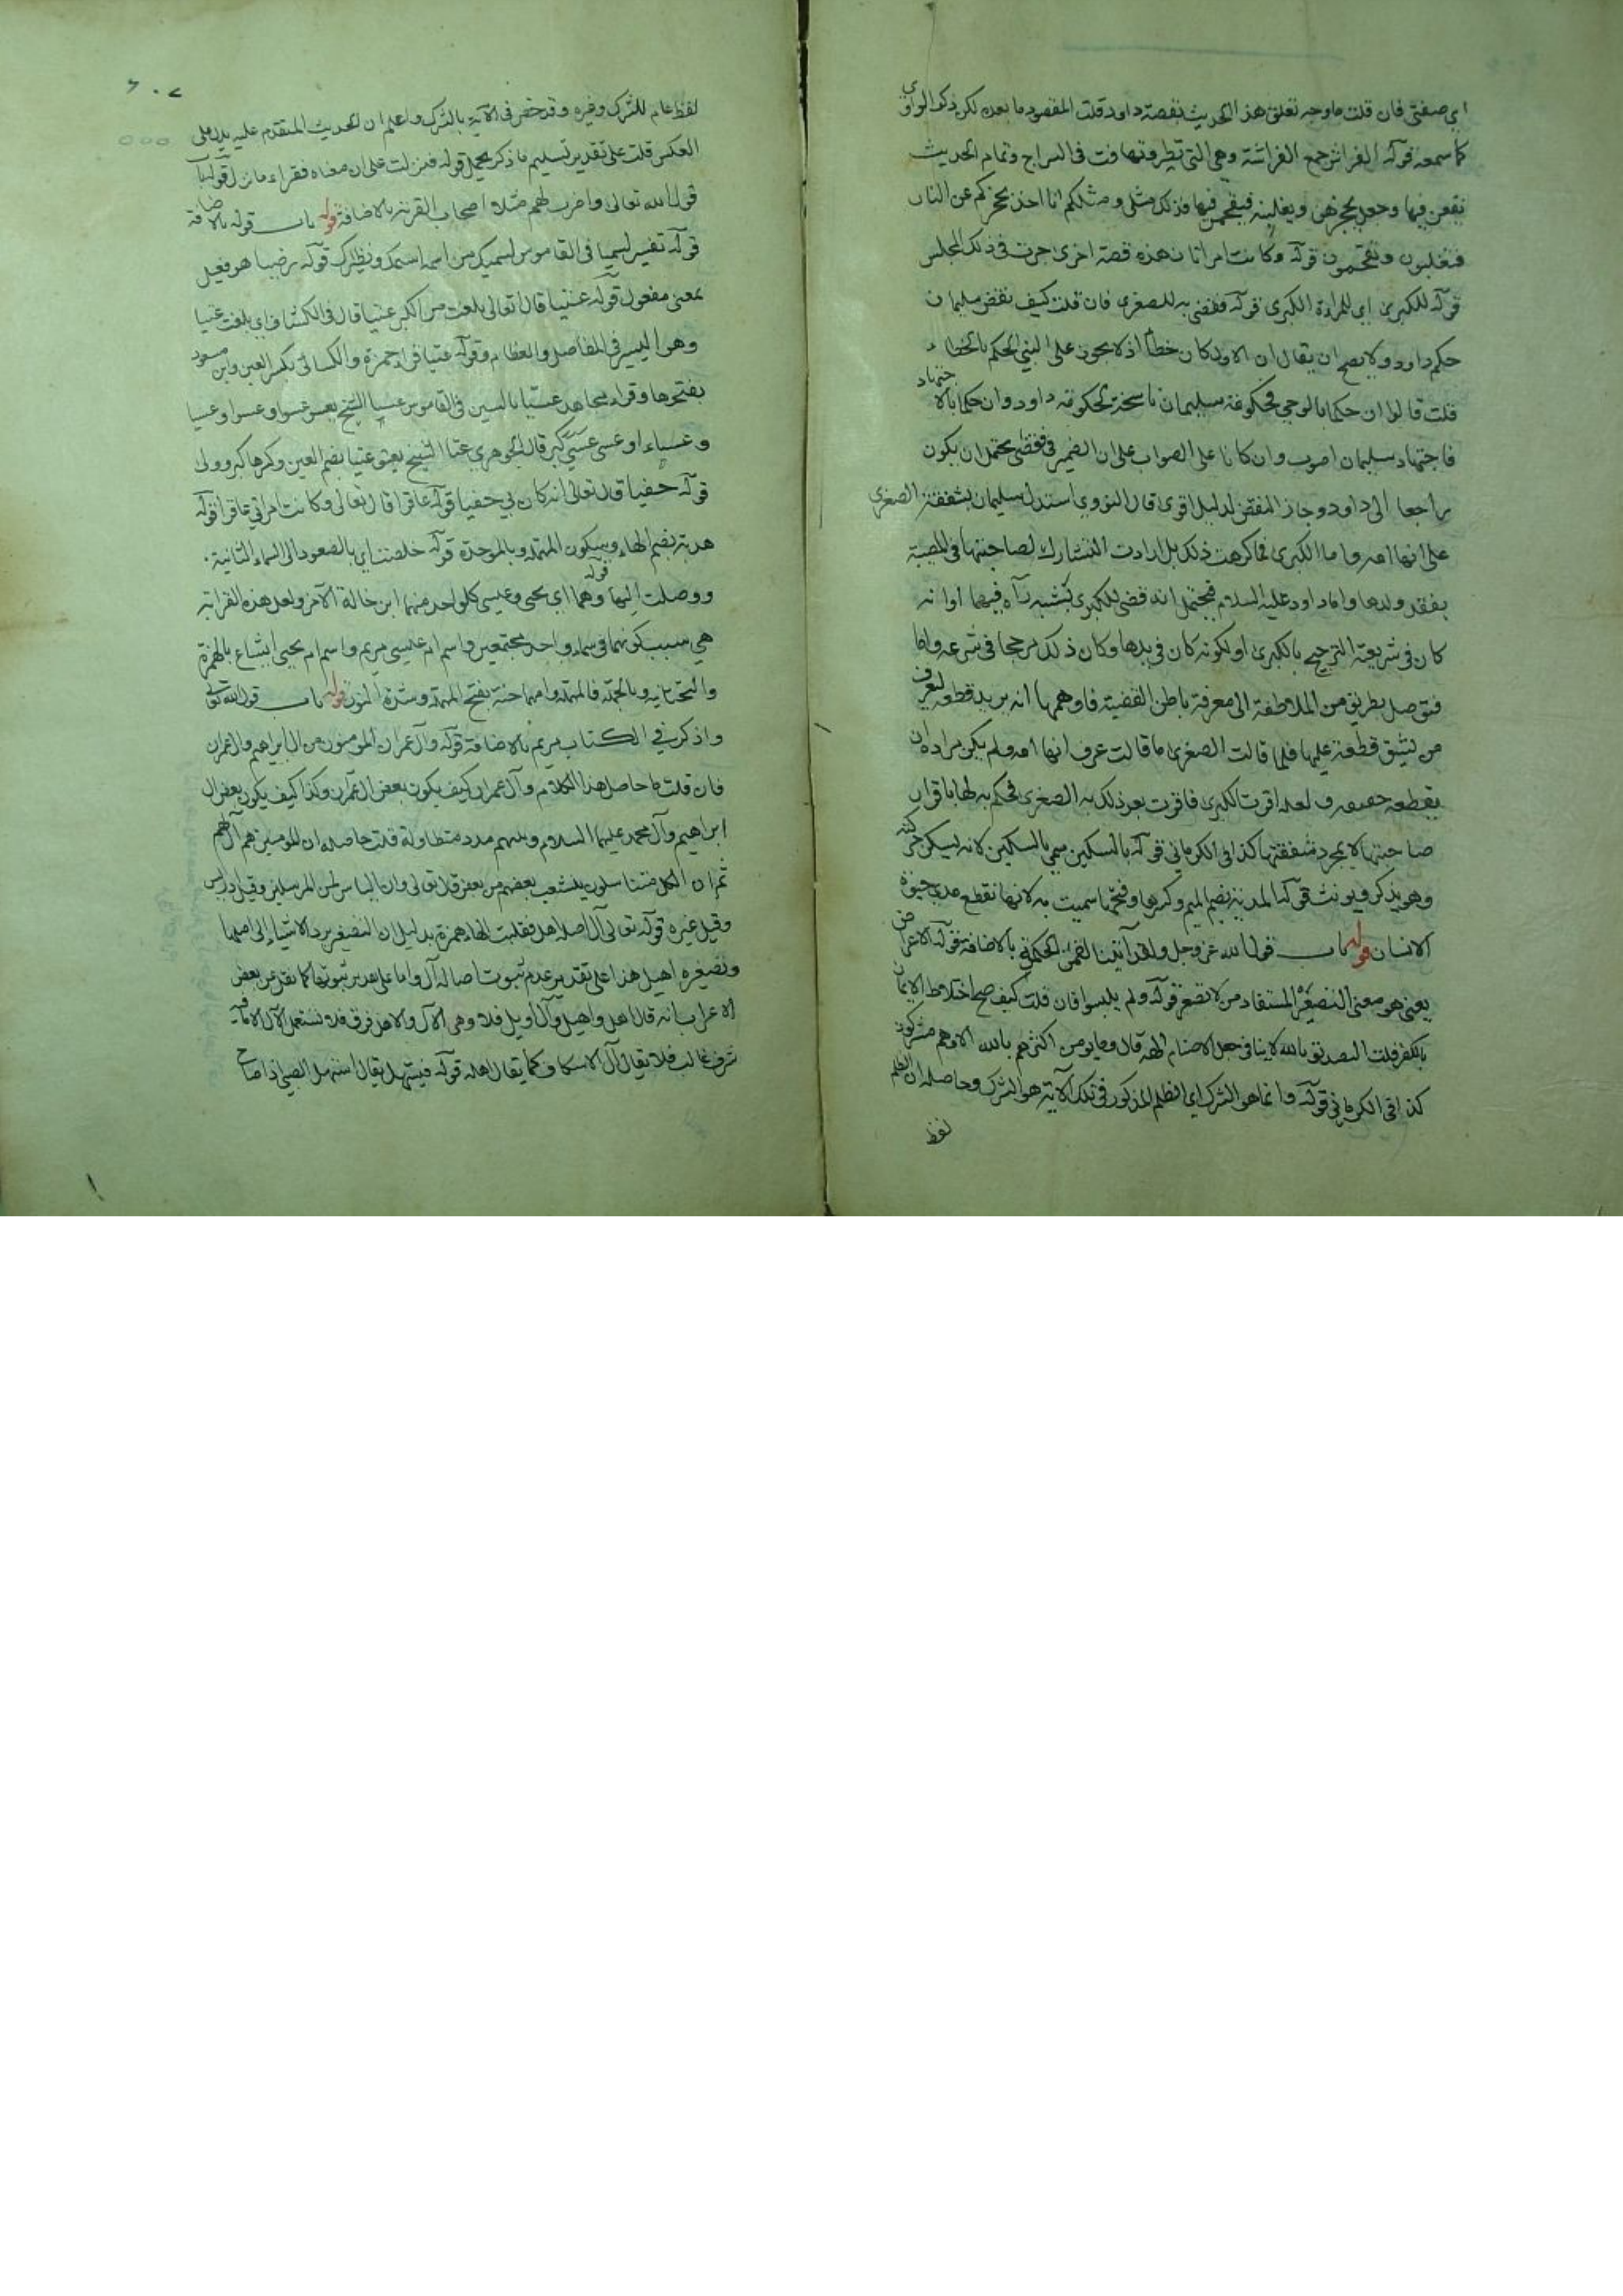 اي صفتي فان قلت ما وجه تعلق هذا الحديث بقصة داود قلت المقصود ما بعده لكن ذكر الراوي
كما سمعه قوله الفراش جمع الفراشة وهي التي تطير وتهافت في السراج وتمام الحديث
يقعن فيها وجعل يحجزهن ويغلبنه فيقتحمن فيها فذلك مثلي ومثلكم انا اخذ بحجزكم عن النار
فتغلبون وتقتحمون قوله وكانت امراتان هذه قصة اخرى جرت في ذلك المجلس
قوله للكبرى اي للمراة الكبرى قوله فقضى به للصغرى فان قلت كيف نقض سليمان
حكم داود ولا يصح ان يقال ان الاول كان خطأ اذ لا يجوز على النبي الحكم بالخطاء
قلت قالوا ان حكما بالوحي فحكومة سليمان ناسخة لحكومة داود وان حكما بالاجتهاد
فاجتهاد سليمان اصوب وان كانا على الصواب على ان الضمير في فقضى يحتمل ان يكون
راجعا الى داود وجاز النقض لدليل اقوى قال النووي استدل سليمان بشفقة الصغرى
على انها امه واما الكبرى فما كرهت ذلك بل ارادت التشارك لصاحبتها في المصيبة
بفقد ولدها واما داود عليه السلام فيحتمل انه قضى للكبرى بشبه رآه فيهما او انه
كان في شريعته الترجيح بالكبرى او لكونه كان في يدها وكان ذلك مرجحا في شرعه واما
فتوصل بطريق من الملاطفة الى معرفة باطن القضية فاوهمها انه يريد قطعه ليعرف
من يشق قطعه عليها فلما قالت الصغرى ما قالت عرف انها امه ولم يكن مراده ان
يقطعه حقيقة ولعله اقرت الكبرى فاقرت بعد ذلك به الصغرى فحكم به لها باقرار
صاحبتها لا بمجرد شفقتها كذا في الكرماني قوله بالسكين سمي بالسكين لانه يسكن حركته
وهو يذكر ويؤنث قوله المدية بضم الميم وكسرها وفتحها سميت به لانها تقطع مدى حيوة
الانسان قوله باب قول الله عز وجل ولقد آتينا لقمن الحكمة بالاضافة قوله الاعراض
يعني هو معنى التصعير المستفاد من لا تصعر قوله ولم يلبسوا فان قلت كيف صح اختلاط الايمان
بالكفر قلت التصديق بالله لا ينافي جعل الاصنام الهة قال وما يومن اكثرهم بالله الا وهم مشركون
كذا في الكرماني قوله وانما هو الشرك اي الظلم المذكور في تلك الآية هو الشرك وحاصله ان الظلم
لفظ
لفظ عام للشرك وغيره وقد خص في الآية بالشرك واعلم ان الحديث المتقدم عليه يدل على
العكس قلت على تقدير تسليم ما ذكر يحمل قوله فنزلت على ان معناه فقراء ما نزل قوله باب
قول الله تعالى واضرب لهم مثلا اصحاب القرية بالاضافة قوله باب قوله بالاضافة
قوله تفسير لسميا في القاموس لسميك من اسمه اسمك ونظيرك قوله رضيا هو فعيل
بمعنى مفعول قوله عتيا قال تعالى بلغت من الكبر عتيا قال في الكشاف اي بلغت عتيا
وهو اليبس في المفاصل والعظام وقوله عتيا قراء حمزة والكسائي بكسر العين وابن مسعود
بفتحها وقراء مجاهد عسيا بالسين في القاموس عسا الشيخ يعسو عسوا وعسوا وعسيا
وعساء او عسى عسى كبر قال الجوهري عتا الشيخ يعتو عتيا بضم العين وكسرها كبر وولى
قوله حفيا قال تعالى انه كان بي حفيا قوله عاقرا قال تعالى وكانت امراتي عاقرا قوله
هدبة بضم الهاء وسكون المهملة وبالموحدة قوله خلصت اي بالصعود الى السماء الثانية
ووصلت اليها قوله وهما اي يحيى وعيسى كل واحد منهما ابن خالة الآخر ولعل هذه القرابة
هي سبب كونهما في سماء واحد مجتمعين واسم ام عيسى مريم واسم ام يحيى ايشاع بالهمزة
والتحتانية وبالمعجمة فالمهملة وامهما حنة بفتح المهملة وشدة النون قوله باب قول الله تعالى
واذكر في الكتاب مريم بالاضافة قوله وآل عمران المومنون من ال ابراهيم وال عمران
فان قلت ما حاصل هذا الكلام وآل عمران كيف يكون بعض ال عمران وكذا كيف يكون بعض ال
ابراهيم وآل محمد عليهما السلام وبينهم مدد متطاولة قلت حاصله ان المومنين هم آلهم
ثم ان الكل متناسلون يتشعب بعضهم من بعض قال تعالى وان الياس لمن المرسلين وقيل ادريس
وقيل غيره قوله تعالى آل اصله اهل فقلبت الهاء همزة بدليل ان التصغير يرد الاشياء الى اصلها
وتصغيره اهيل هذا على تقدير عدم ثبوت اصالة آل واما على تقدير ثبوتها كما نقل عن بعض
الاعراب انه قال اهل واهيل وآل اويل فلا وهي الآل والاهل فرق فلا تستعمل الآل الا فيه
شرف غالب فلا يقال آل الاسكاف كما يقال اهله قوله فيستهل يقال استهل الصبي اذا صاح